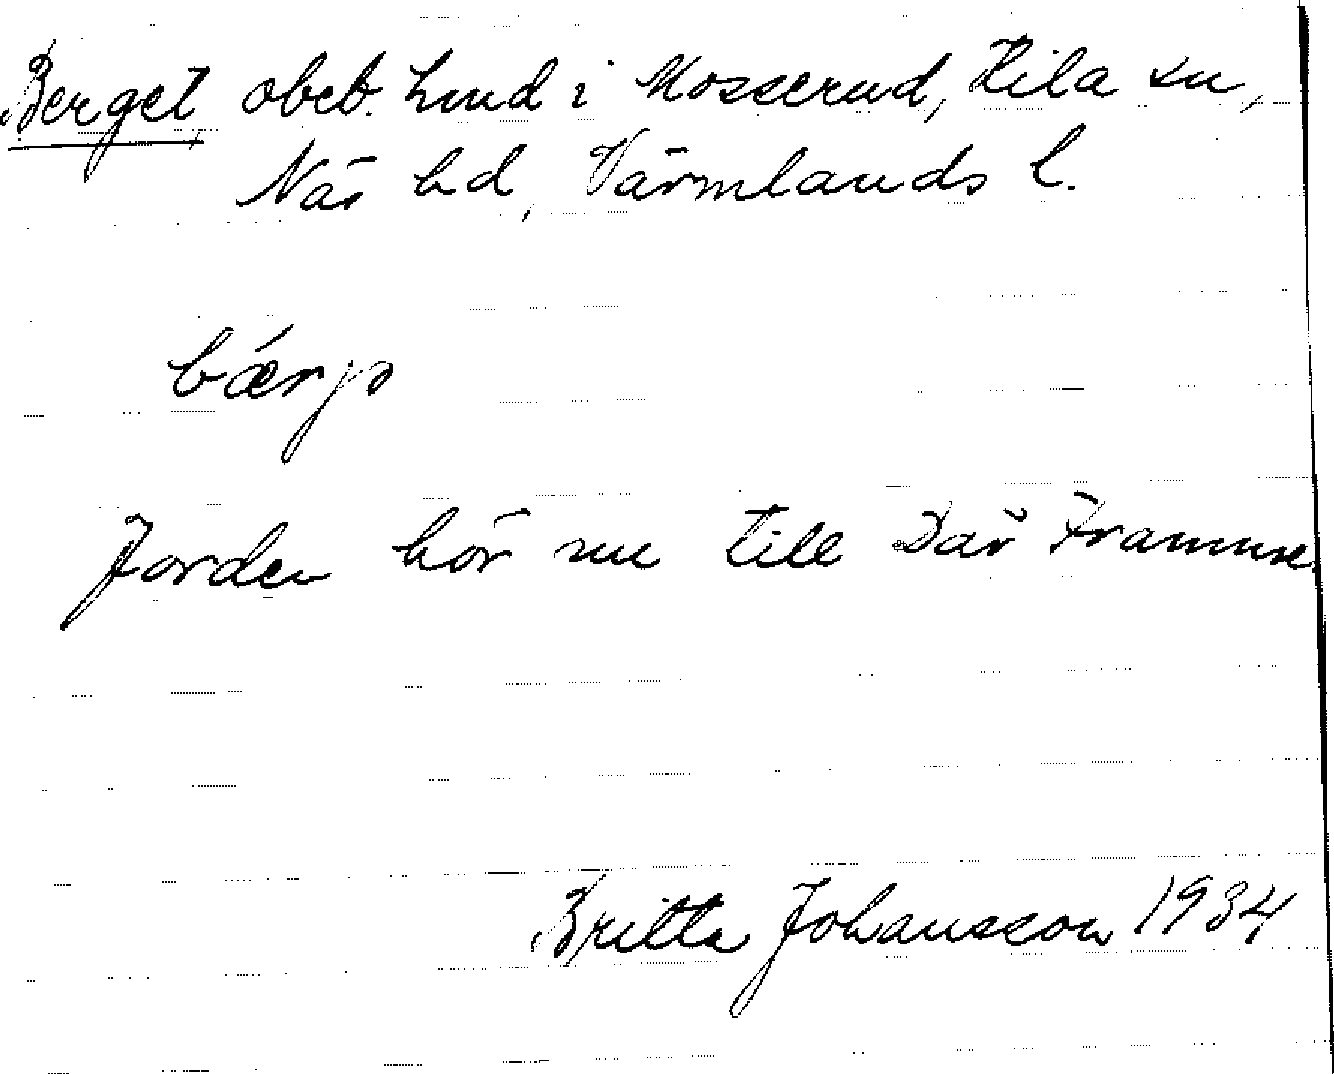 Berget, obeb. hmd i Mosserud, Kila sn,
Näs hd, Värmlands l.
bærjə
Jorden hör nu till Där Framme
Britta Johansson 1934